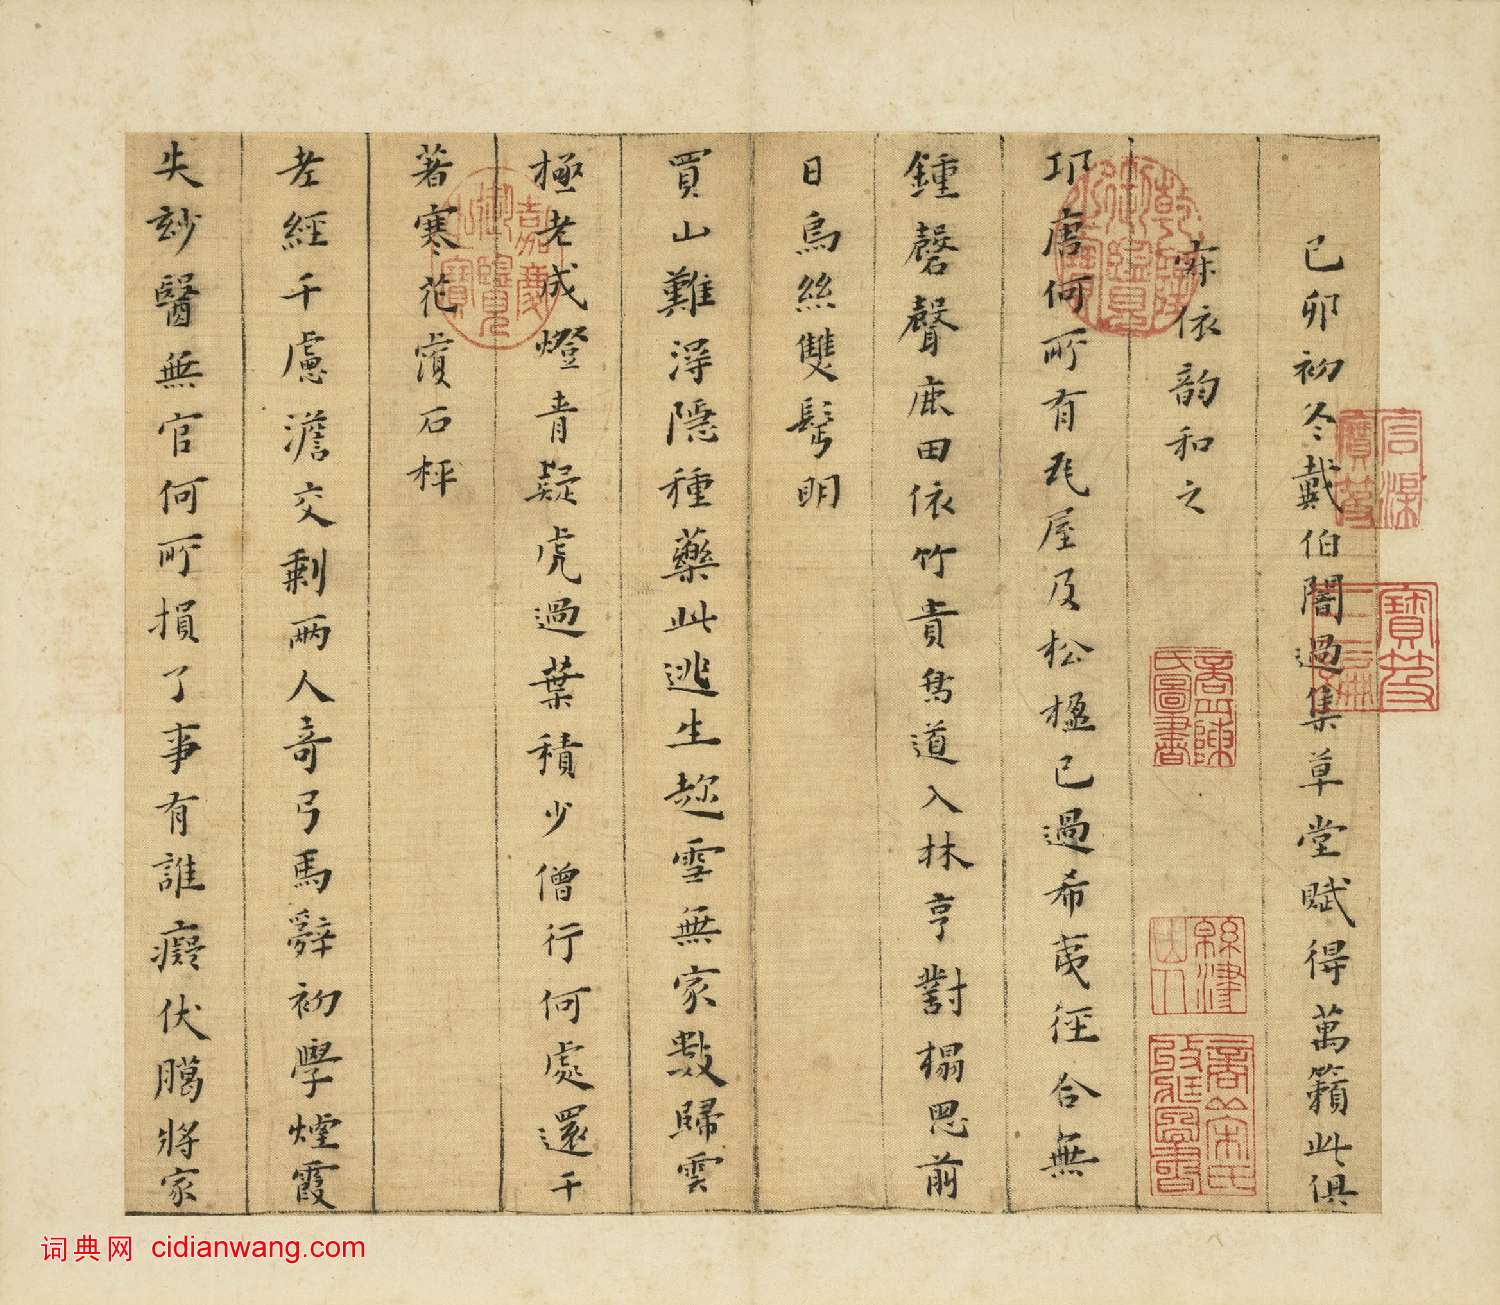 己卯初冬戴伯闇過集草堂賦得萬籟此俱
寂依韵和之
邛唐何所有瓦屋及松楹已過希夷徑合無
鍾磬聲鹿田依竹貴鳥道入林亨對榻思前
日烏絲雙髩明
買山難浔隱種藥此逃生趂雪無家數歸雲
極老成燈青疑虎過葉積少僧行何處還千
著寒花濱石枰
老經千慮澹交剩兩人奇弓馬辭初學煙霞
失玅醫無官何所損了事有誰癡伏臈將家
乾隆御覽之寶
嘉慶御覽之寶
詞典网 cidianwang.com